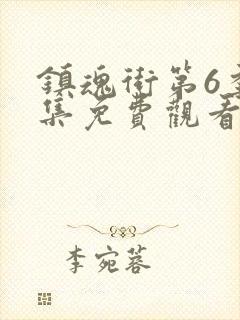 鎮魂街第6季
集免費觀看
李宛蓉